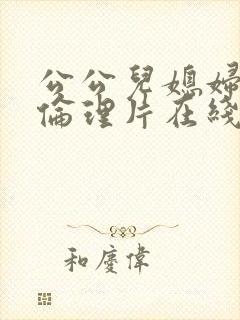 公公兒媳婦
倫理片在綫
和慶偉